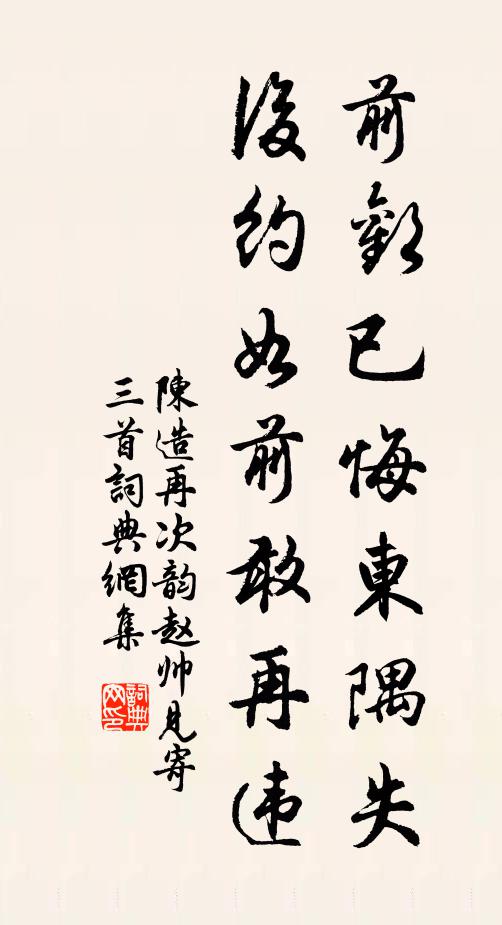 前歡已悔東隅失
後約如前敢再违
陳造再次韵赵帅見寄
三首詞典網集
詞典
网印